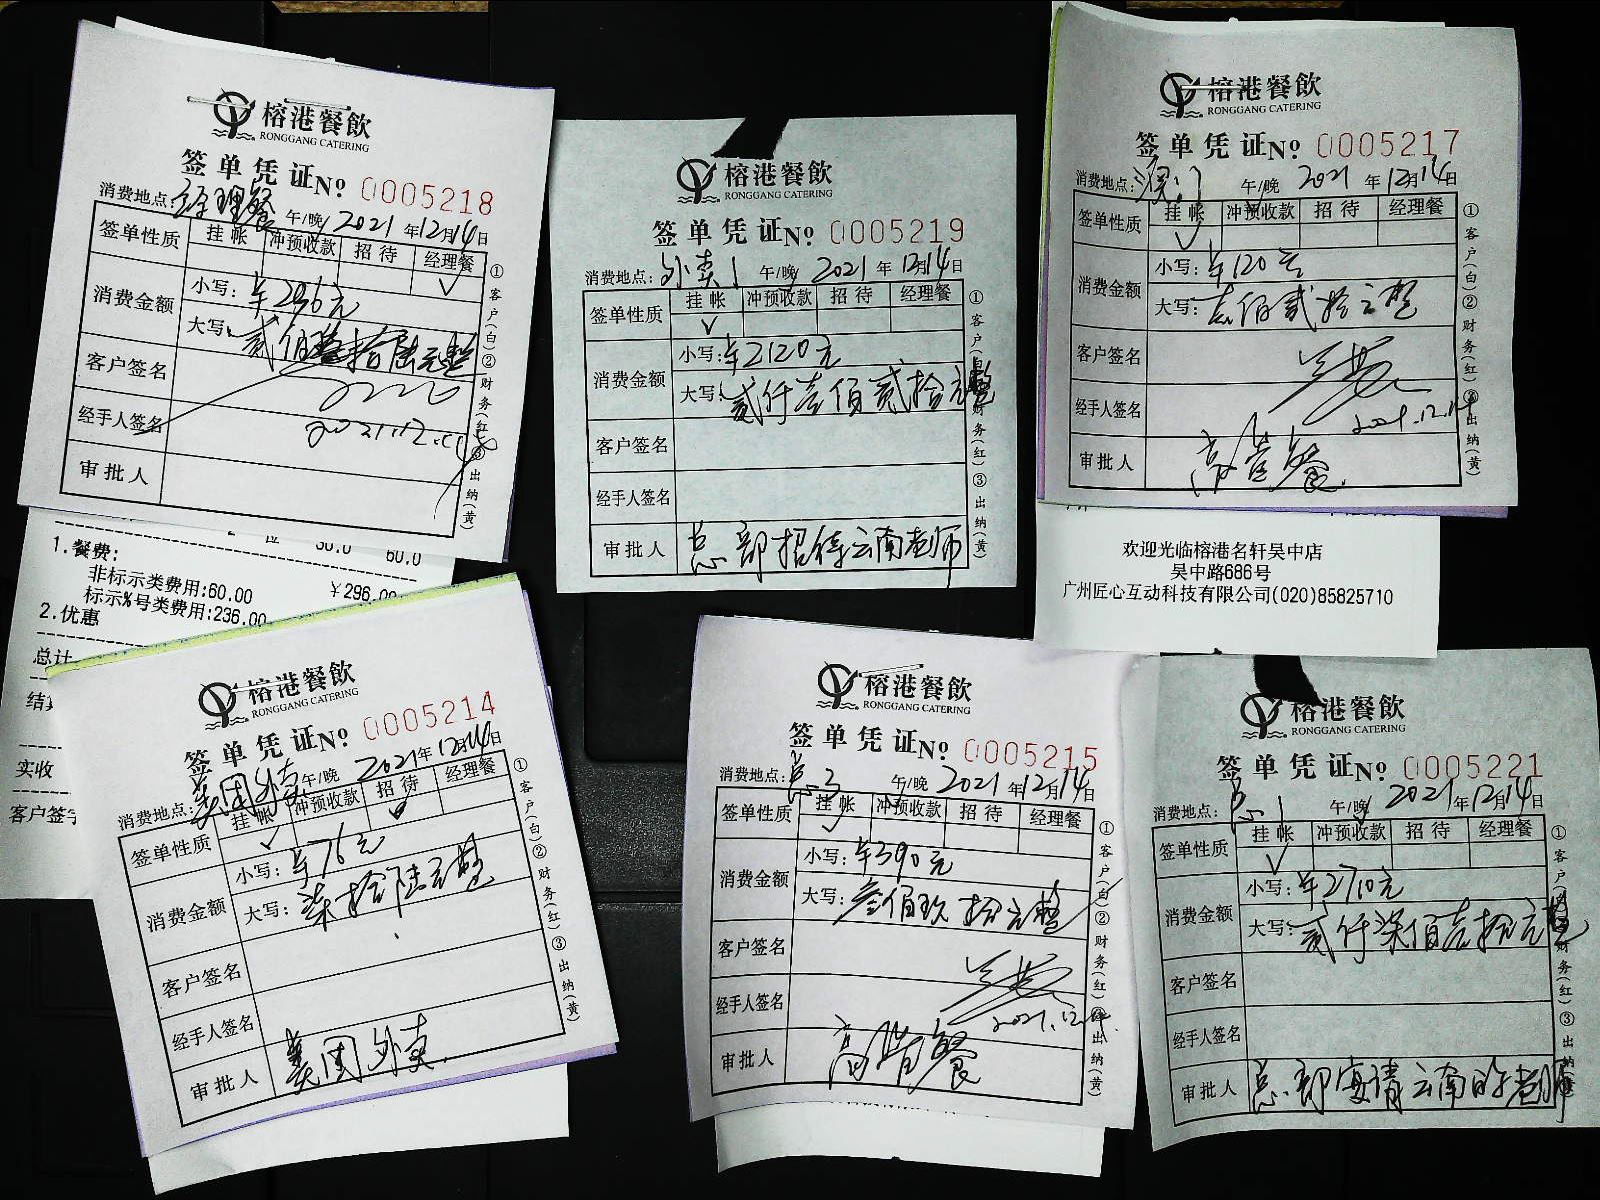 榕港餐飲
RONGGANG CATERING
签单凭证No 0005218
消费地点: 经理餐 午/晚 2021年12月14日
签单性质 挂帐 冲预收款 招待 经理餐 ✓
消费金额 小写: ¥296元
大写: 贰佰玖拾陆元整
客户签名
经手人签名 2021.12.14
审批人
①客户(白)②财务(红)③出纳(黄)
榕港餐飲
RONGGANG CATERING
签单凭证No 0005219
消费地点: 外卖1 午/晚 2021年12月14日
签单性质 挂帐 ✓ 冲预收款 招待 经理餐
消费金额 小写: ¥2120元
大写: 贰仟壹佰贰拾元整
客户签名
经手人签名
审批人 总部招待云南老师
①客户(白)②财务(红)③出纳(黄)
榕港餐飲
RONGGANG CATERING
签单凭证No 0005217
消费地点: 午/晚 2021年12月14日
签单性质 挂帐 ✓ 冲预收款 招待 经理餐
消费金额 小写: ¥120元
大写: 壹佰贰拾元整
客户签名
经手人签名 2021.12.14
审批人 高管餐
①客户(白)②财务(红)③出纳(黄)
2 位 30.0 60.0
1.餐费: ¥296.00
非标示类费用:60.00
标示%号类费用:236.00
2.优惠
总计
实收
客户签字
欢迎光临榕港名轩吴中店
吴中路686号
广州匠心互动科技有限公司(020)85825710
榕港餐飲
RONGGANG CATERING
签单凭证No 0005214
消费地点: 美团外卖 午/晚 2021年12月14日
签单性质 挂帐 ✓ 冲预收款 招待 ✓ 经理餐
消费金额 小写: ¥76元
大写: 柒拾陆元整
客户签名
经手人签名
审批人 美团外卖
①客户(白)②财务(红)③出纳(黄)
榕港餐飲
RONGGANG CATERING
签单凭证No 0005215
消费地点: 总3 午/晚 2021年12月14日
签单性质 挂帐 ✓ 冲预收款 招待 经理餐
消费金额 小写: ¥390元
大写: 叁佰玖拾元整
客户签名
经手人签名 2021.12.14
审批人 高管餐
①客户(白)②财务(红)③出纳(黄)
榕港餐飲
RONGGANG CATERING
签单凭证No 0005221
消费地点: 总1 午/晚 2021年12月14日
签单性质 挂帐 ✓ 冲预收款 招待 经理餐
消费金额 小写: ¥2710元
大写: 贰仟柒佰壹拾元整
客户签名
经手人签名
审批人 总部宴请云南的老师
①客户(白)②财务(红)③出纳(黄)